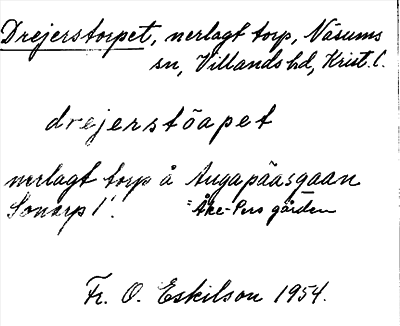 Drejerstorpet, nerlagt torp, Näsums
sn, Villands hd, Krist. l.
drejerstöapet
nerlagt torp å Augapääsgaan
Sonarp 1.
= Åke-Pers gården
Fr. O. Eskilson 1954.